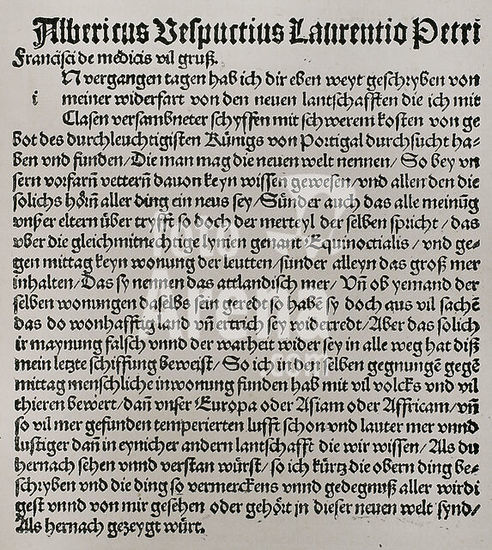 Albericus Vespuctius Laurentio Petri
Francisci de medicis vil gruß.
N vergangen tagen hab ich dir eben weyt geschryben von
i meiner widerfart von den neuen lantschafften die ich mit
Clasen versambneter schyffen mit schwerem kosten von ge
bot des durchleuchtigisten Künigs von Portigal durchsucht ha-
ben vnd funden/Die man mag die neuen welt nennen/So bey vn
sern vorfarn vettern dauon keyn wissen gewesen/vnd allen den die
solichs hörn aller ding ein neus sey/Sünder auch das alle meinūg
vnßer eltern über tryfft so doch der merteyl der selben spricht/das
vber die gleichmitnechtige lynien genant Equinoctialis/vnd ge-
gen mittag keyn wonung der leutten/sunder alleyn das groß mer
inhalten/Das sy nennen das attlandisch mer/Vñ ob yemand der
selben wonungen daselbs sein geredt so habē sy doch aus vil sachē
das do wonhafftig land vñ ertrich sey widerredt/Aber das solich
ir maynung falsch vnnd der warheit wider sey in alle weg hat diß
mein letzte schiffung beweist/So ich in der selben gegnungē gegē
mittag menschliche inwonung funden hab mit vil volcks vnd vil
thieren bewert/dañ vnser Europa oder Asiam oder Affricam/vñ
so vil mer gefunden temperierten lufft schon vnd lauter mer vnnd
lustiger dañ in eynicher andern lantschafft die wir wissen/Als du
hernach sehen vnnd verstan würst/so ich kürtz die obern ding be-
schryben vnd die ding so vermerckens vnnd gedegnuß aller wirdi
gest vnnd von mir gesehen oder gehört in dieser neuen welt synd/
Als hernach gezeygt würt.